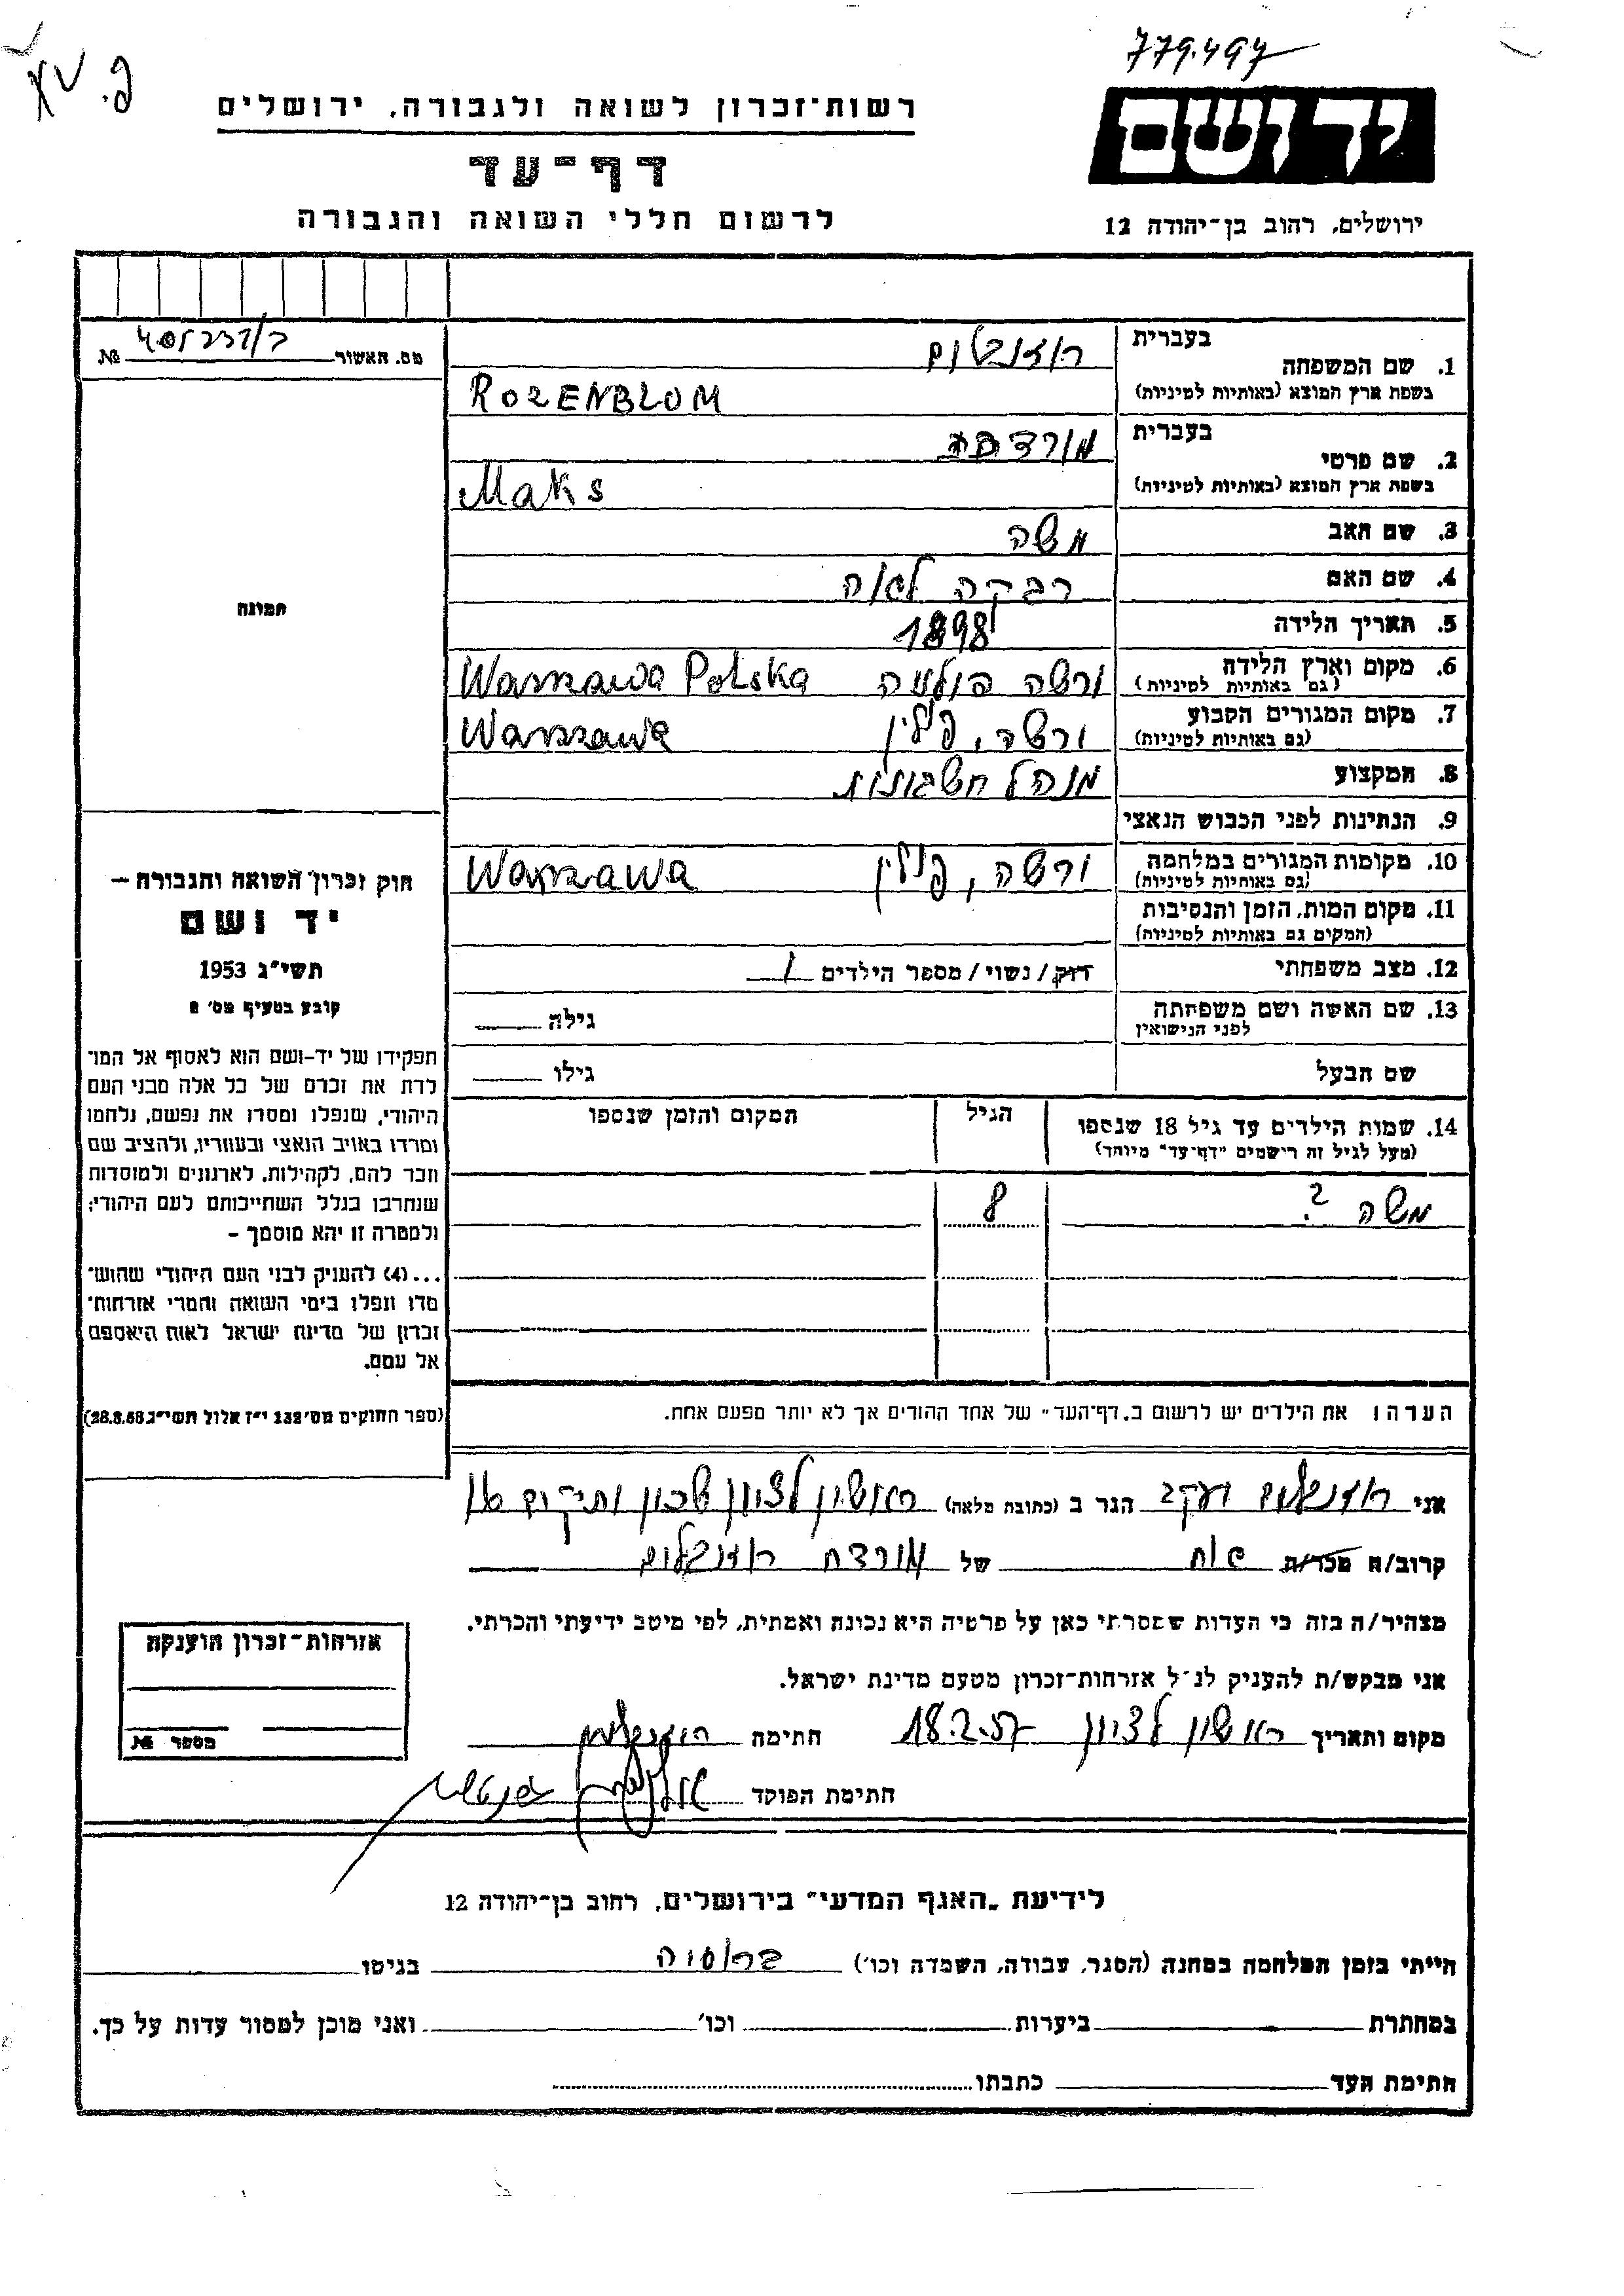 779.497
רשות-זכרון לשואה ולגבורה, ירושלים
יד ושם
דף-עד
לרשום חללי השואה והגבורה
ירושלים, רחוב בן-יהודה 12
מס. האשור №
1. שם המשפחה
בעברית
רוזנבלום
בשפת ארץ המוצא (באותיות לטיניות)
ROZENBLOM
2. שם פרטי
בעברית
מורדכי
בשפת ארץ המוצא (באותיות לטיניות)
Maks
3. שם האב משה
4. שם האם רבקה לאה
5. תאריך הלידה 1898
6. מקום וארץ הלידה ורשה פולניה Warszawa Polska
(גם באותיות לטיניות)
7. מקום המגורים הקבוע ורשה, פולין Warszawa
(גם באותיות לטיניות)
8. המקצוע מנהל חשבונות
9. הנתינות לפני הכבוש הנאצי
10. מקומות המגורים במלחמה ורשה, פולין Warszawa
(גם באותיות לטיניות)
11. מקום המות, הזמן והנסיבות
(המקום גם באותיות לטיניות)
12. מצב משפחתי רווק/נשוי/מספר הילדים 1
13. שם האשה ושם משפחתה גילה
לפני הנישואין
שם הבעל גילו
14. שמות הילדים עד גיל 18 שנספו הגיל המקום והזמן שנספו
(מעל לגיל זה רישמים "דף-עד" מיוחד)
משה ? 8
תמונה
חוק זכרון השואה והגבורה –
יד ושם
תשי"ג 1953
קובע בסעיף מס' 2
תפקידו של יד-ושם הוא לאסוף אל המו־
לדת את זכרם של כל אלה מבני העם
היהודי, שנפלו ומסרו את נפשם, נלחמו
ומרדו באויב הנאצי ובעוזריו, ולהציב שם
וזכר להם, לקהילות, לארגונים ולמוסדות
שנחרבו בגלל השתייכותם לעם היהודי;
ולמטרה זו יהא מוסמך –
...(4) להעניק לבני העם היהודי שהוש־
מדו ונפלו בימי השואה והמרי אזרחות־
זכרון של מדינת ישראל לאות היאספם
אל עמם.
(ספר החוקים מס' 132 י"ז אלול תשי"ג
הערה: את הילדים יש לרשום ב„דף-העד" של אחד ההורים אך לא יותר מפעם אחת.
אני רוזנבלום יעקב הגר ב (כתובת מלאה) ראשון לציון שכון ותיקים
קרוב/ה מכר/ה אח של מורדכי רוזנבלום
מצהיר/ה בזה כי העדות שמסרתי כאן על פרטיה היא נכונה ואמתית, לפי מיטב ידיעתי והכרתי.
אני מבקש/ת להעניק לנ"ל אזרחות-זכרון מטעם מדינת ישראל.
מקום ותאריך ראשון לציון 18.2.57 חתימה רוזנבלום
חתימת הפוקד
אזרחות-זכרון הוענקה
מספר №
לידיעת „האגף המדעי" בירושלים, רחוב בן-יהודה 12
הייתי בזמן המלחמה במחנה (הסגר, עבודה, השמדה וכו') ברוסיה בגיטו
במחתרת ביערות וכו' ואני מוכן למסור עדות על כך.
חתימת העד כתבתו